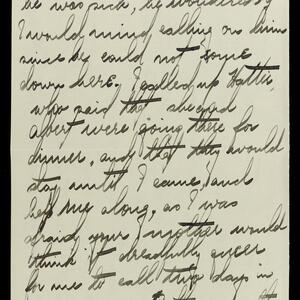 he was sick, he wondered if
I would mind calling on him
since he could not come
down here. I called up Hattie,
who said that she and
Albert were going there for
dinner, and that they would
stay until I came, and
help me along, as I was
afraid your mother would
think it dreadfully queer
for me to call two days in